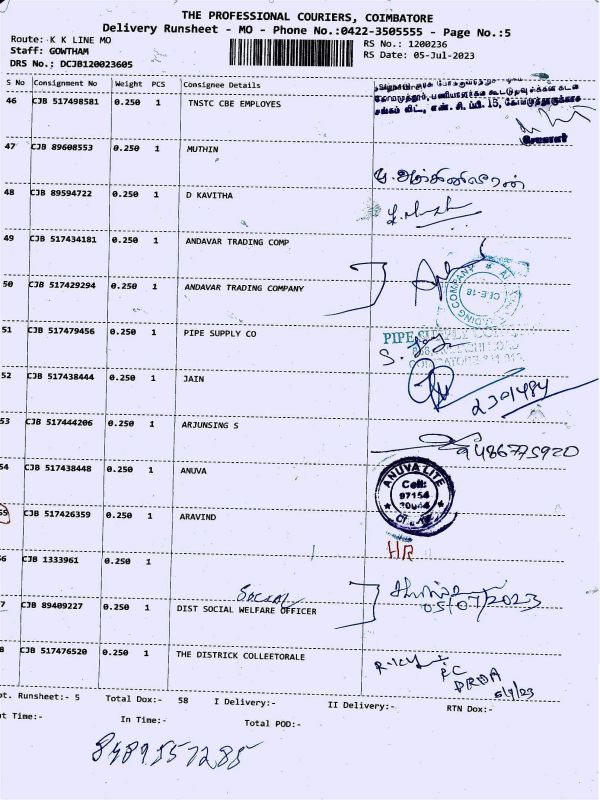 THE PROFESSIONAL COURIERS, COIMBATORE
Delivery Runsheet - MO - Phone No.:0422-3505555 - Page No.:5
Route: K K LINE MO
RS No.: 1200236
Staff: GOWTHAM
RS Date: 05-Jul-2023
DRS No.; DCJB120023605
S No Consignment No Weight PCS Consignee Details
46 CJB 517498581 0.250 1 TNSTC CBE EMPLOYES
47 CJB 89608553 0.250 1 MUTHIN
48 CJB 89594722 0.250 1 D KAVITHA
49 CJB 517434181 0.250 1 ANDAVAR TRADING COMP
50 CJB 517429294 0.250 1 ANDAVAR TRADING COMPANY
51 CJB 517479456 0.250 1 PIPE SUPPLY CO
PIPE SUPPLY
52 CJB 517438444 0.250 1 JAIN
2301484
53 CJB 517444206 0.250 1 ARJUNSING S
9486775920
54 CJB 517438448 0.250 1 ANUVA
ANUVA LITE
Cell:
97154
55 CJB 517426359 0.250 1 ARAVIND
HR
6 CJB 1333961 0.250 1
SOCIAL
05/07/2023
7 CJB 89409227 0.250 1 DIST SOCIAL WELFARE OFFICER
8 CJB 517476520 0.250 1 THE DISTRICK COLLEETORALE
PC
DRDA
5/7/23
ot. Runsheet:- 5 Total Dox:- 58 I Delivery:- II Delivery:- RTN Dox:-
t Time:- In Time:- Total POD:-
8489557285